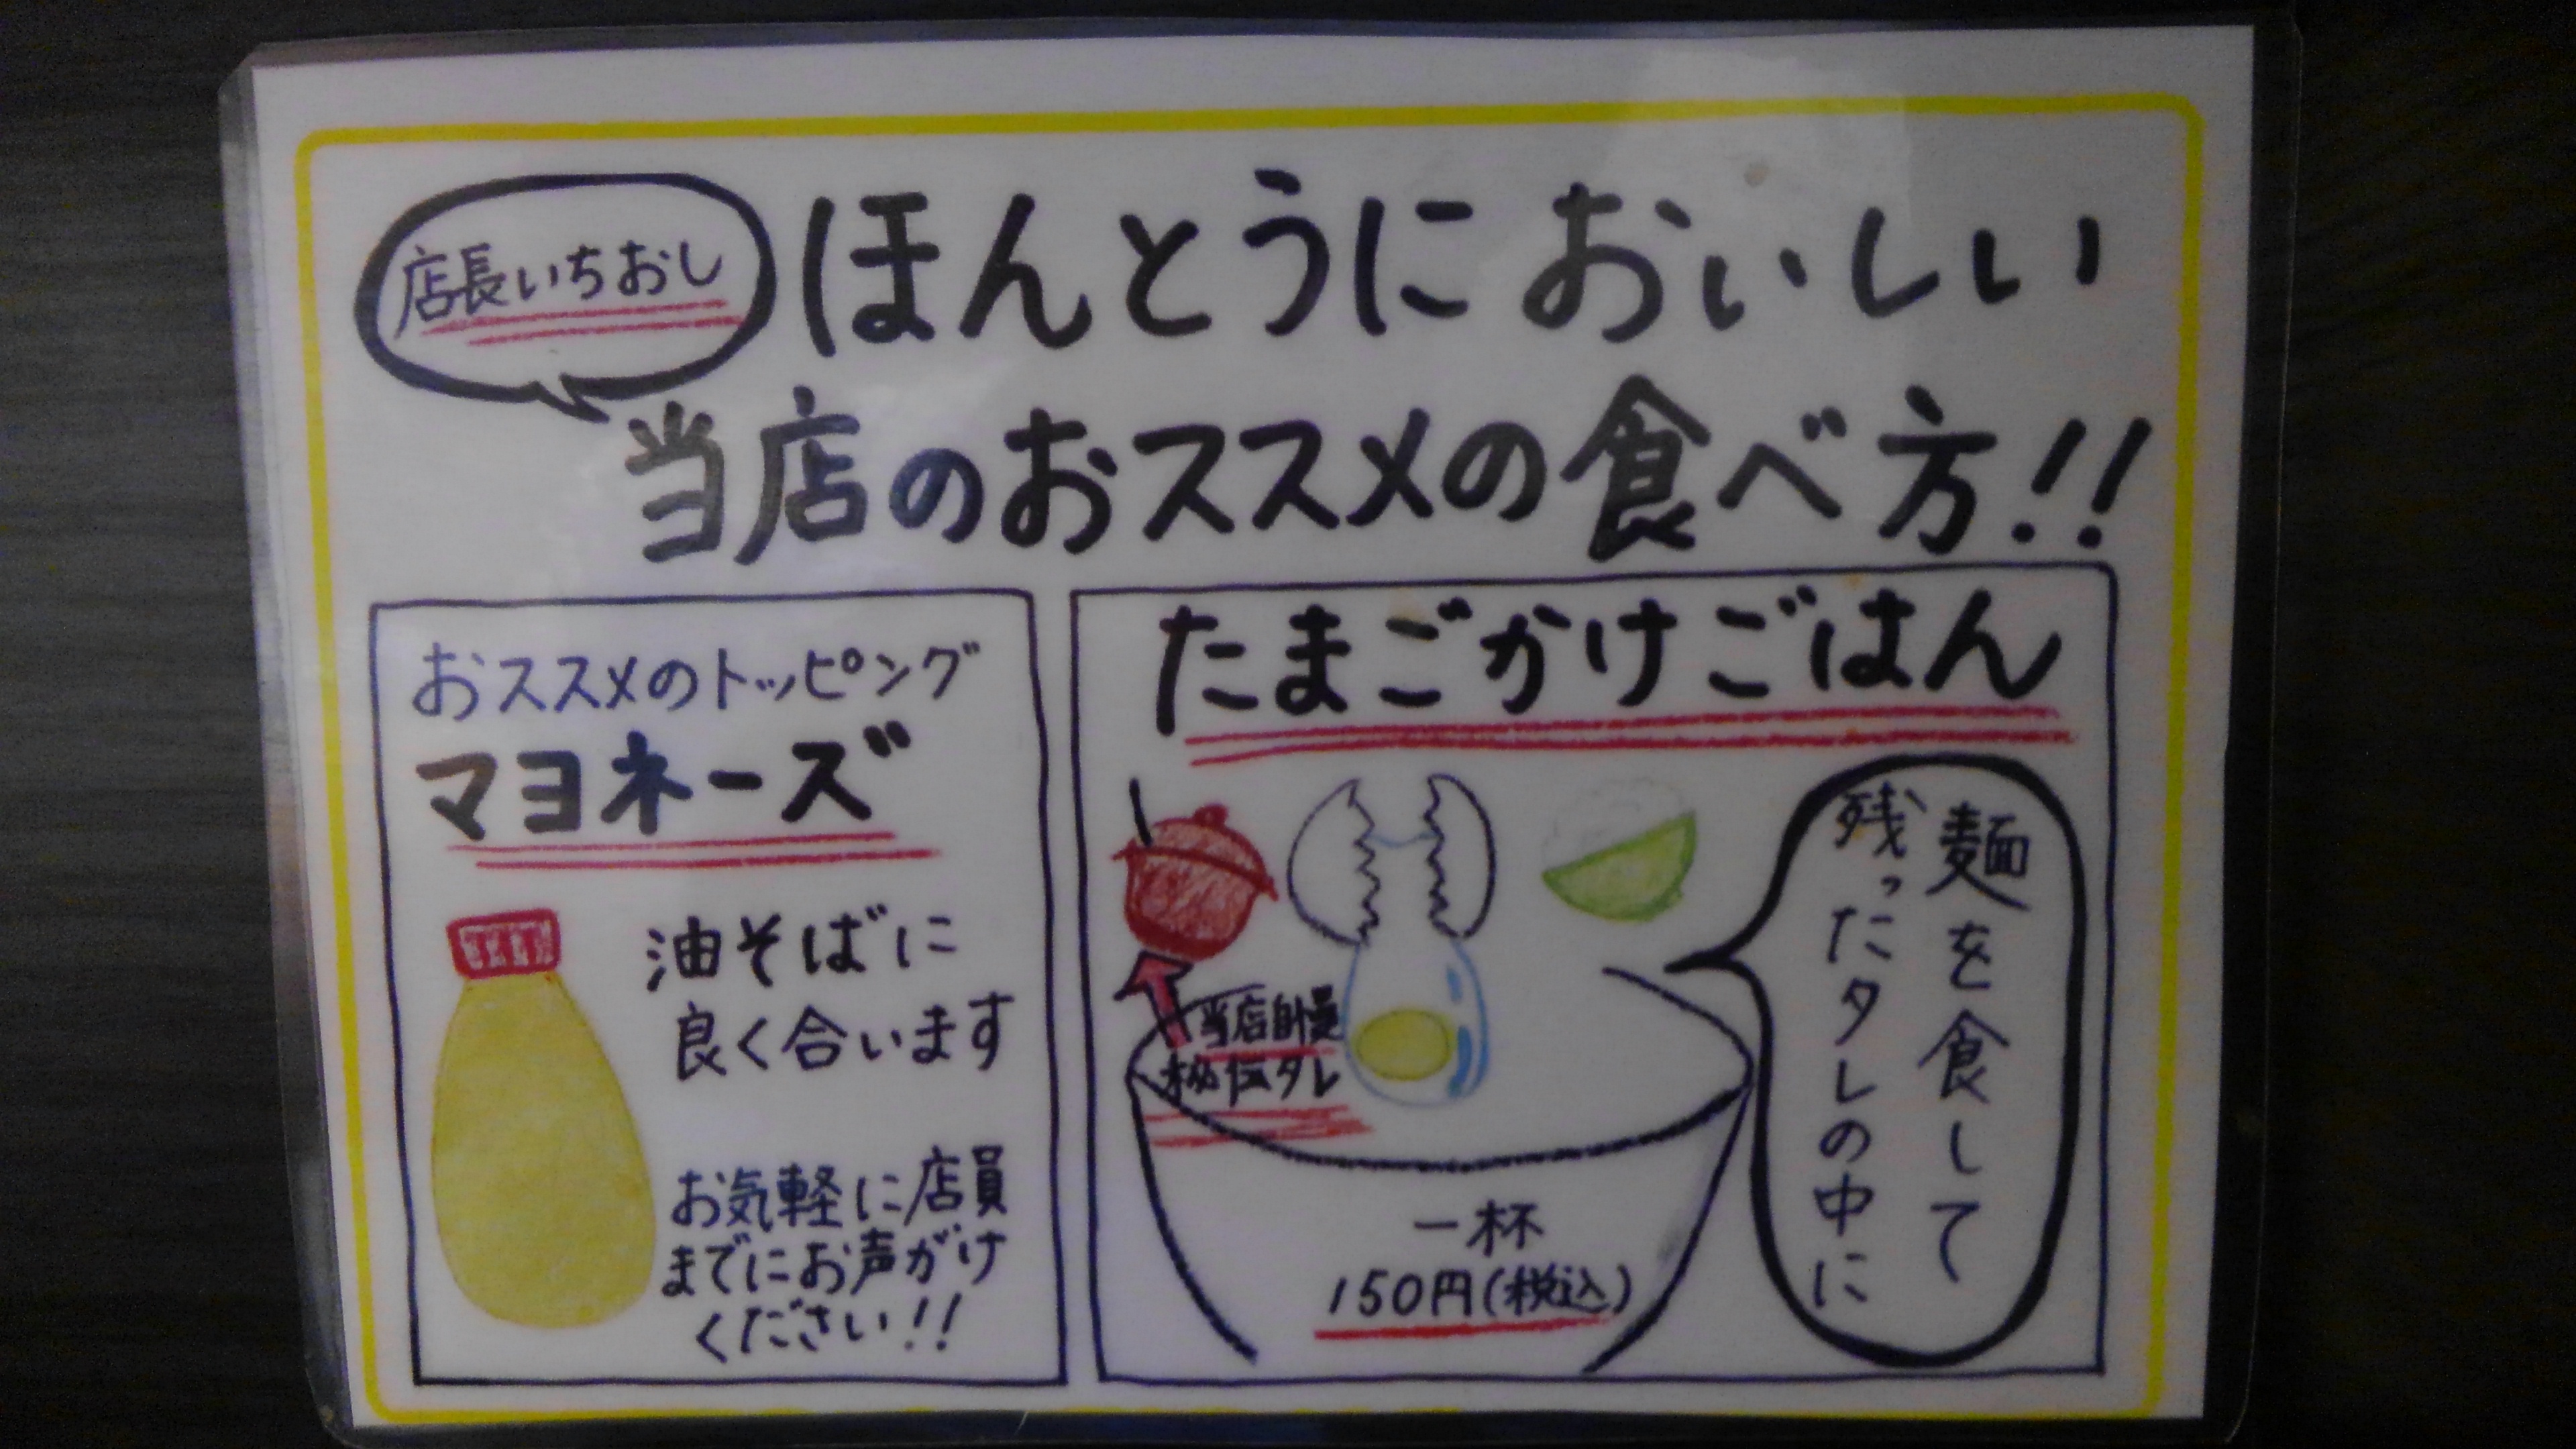 店長いちおし
ほんとうにおいしい
当店のおススメの食べ方!!
おススメのトッピング
マヨネーズ
油そばに
良く合います
お気軽に店員
までにお声がけ
ください!!
たまごかけごはん
麺を食して
残ったタレの中に
当店自慢
秘伝タレ
一杯
150円(税込)